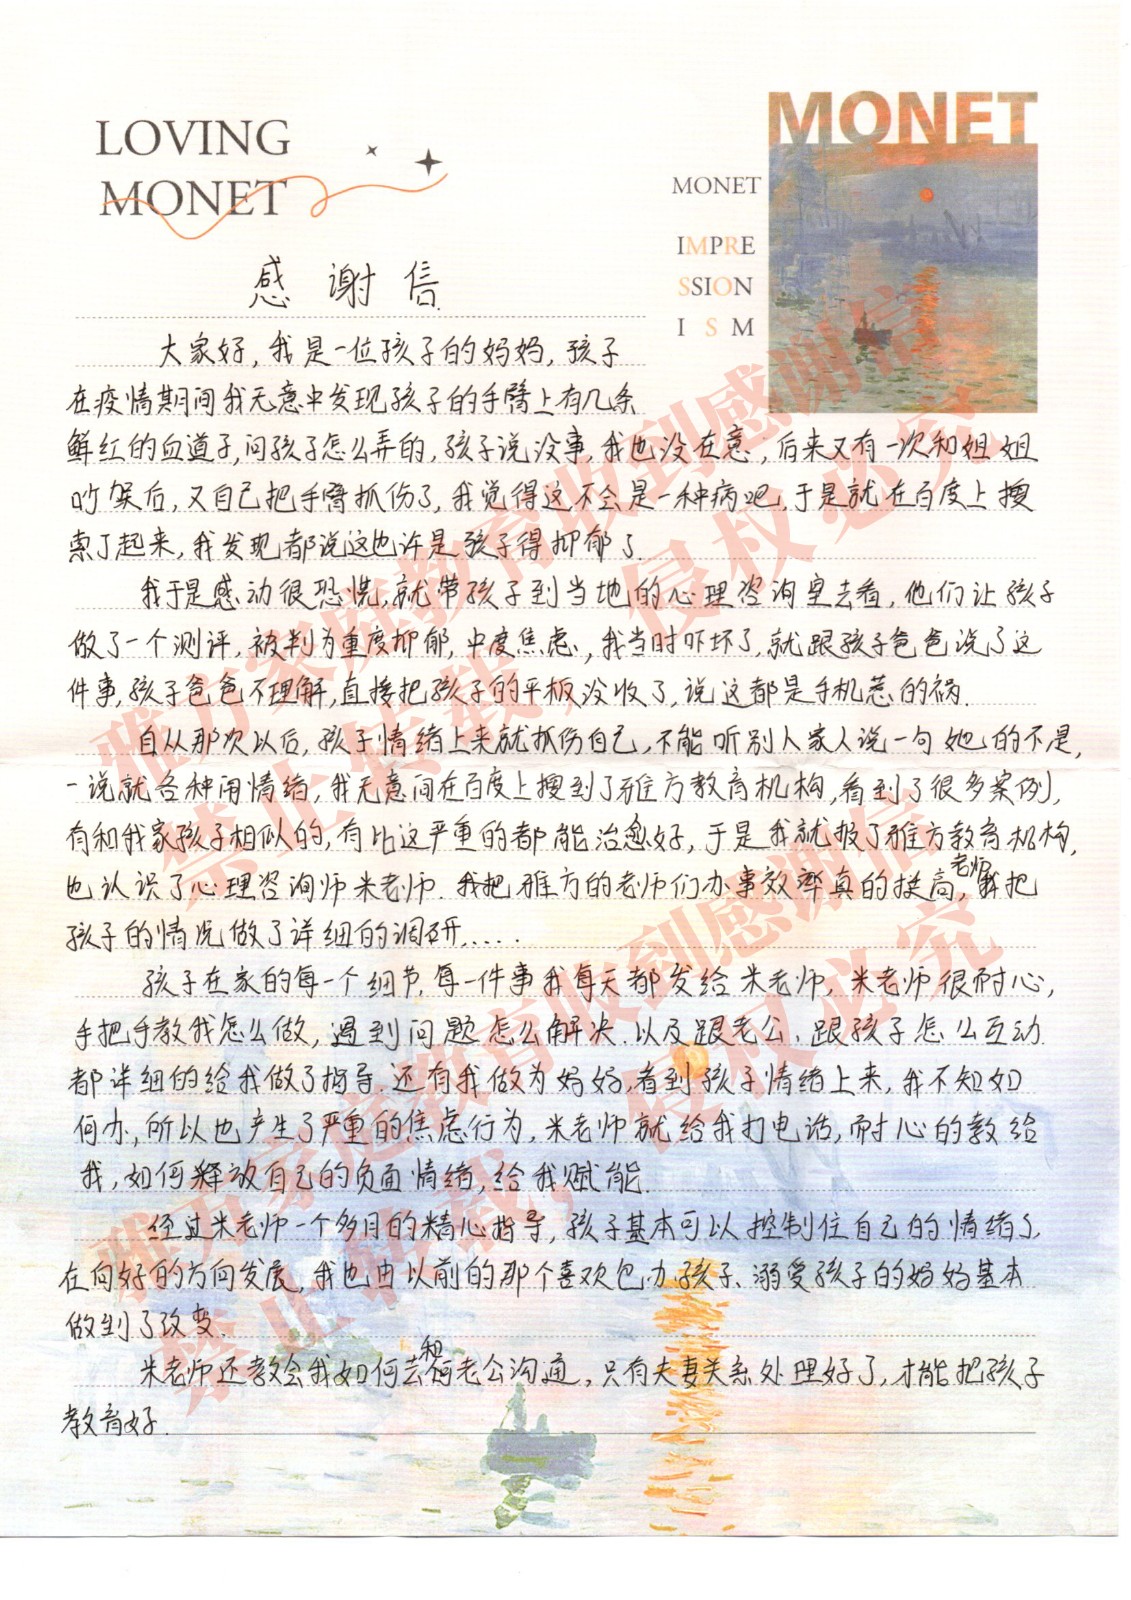 LOVING
MONET
MONET
MONET
IMPRE
SSION
I S M
感谢信
大家好,我是一位孩子的妈妈,孩子
在疫情期间我无意中发现孩子的手臂上有几条
鲜红的血道子,问孩子怎么弄的,孩子说没事,我也没在意,后来又有一次和姐姐
吵架后,又自己把手臂抓伤了,我觉得这不会是一种病吧,于是就在百度上搜
索了起来,我发现都说这也许是孩子得抑郁了.
我于是感动很恐慌,就带孩子到当地的心理咨询室去看,他们让孩子
做了一个测评,被判为重度抑郁,中度焦虑,我当时吓坏了,就跟孩子爸爸说了这
件事,孩子爸爸不理解,直接把孩子的平板没收了,说这都是手机惹的祸.
自从那次以后,孩子情绪上来就抓伤自己,不能听别人家人说一句她的不是,
一说就各种闹情绪,我无意间在百度上搜到了雅方教育机构,看到了很多案例,
有和我家孩子相似的,有比这严重的都能治愈好,于是我就报了雅方教育机构,
也认识了心理咨询师米老师.我把雅方的老师们办事效率真的挺高,老师把
孩子的情况做了详细的调研.....
孩子在家的每一个细节,每一件事我每天都发给米老师,米老师很耐心,
手把手教我怎么做,遇到问题怎么解决.以及跟老公、跟孩子怎么互动
都详细的给我做了指导.还有我做为妈妈,看到孩子情绪上来,我不知如
何办,所以也产生了严重的焦虑行为,米老师就给我打电话,耐心的教给
我,如何释放自己的负面情绪,给我赋能.
经过米老师一个多月的精心指导,孩子基本可以控制住自己的情绪了,
在向好的方向发展,我也由以前的那个喜欢包办孩子、溺爱孩子的妈妈基本
做到了改变.
米老师还教会我如何去和老公沟通,只有夫妻关系处理好了,才能把孩子
教育好.
雅方家庭教育收到感谢信
禁止转载,侵权必究
雅方家庭教育收到感谢信
禁止转载,侵权必究